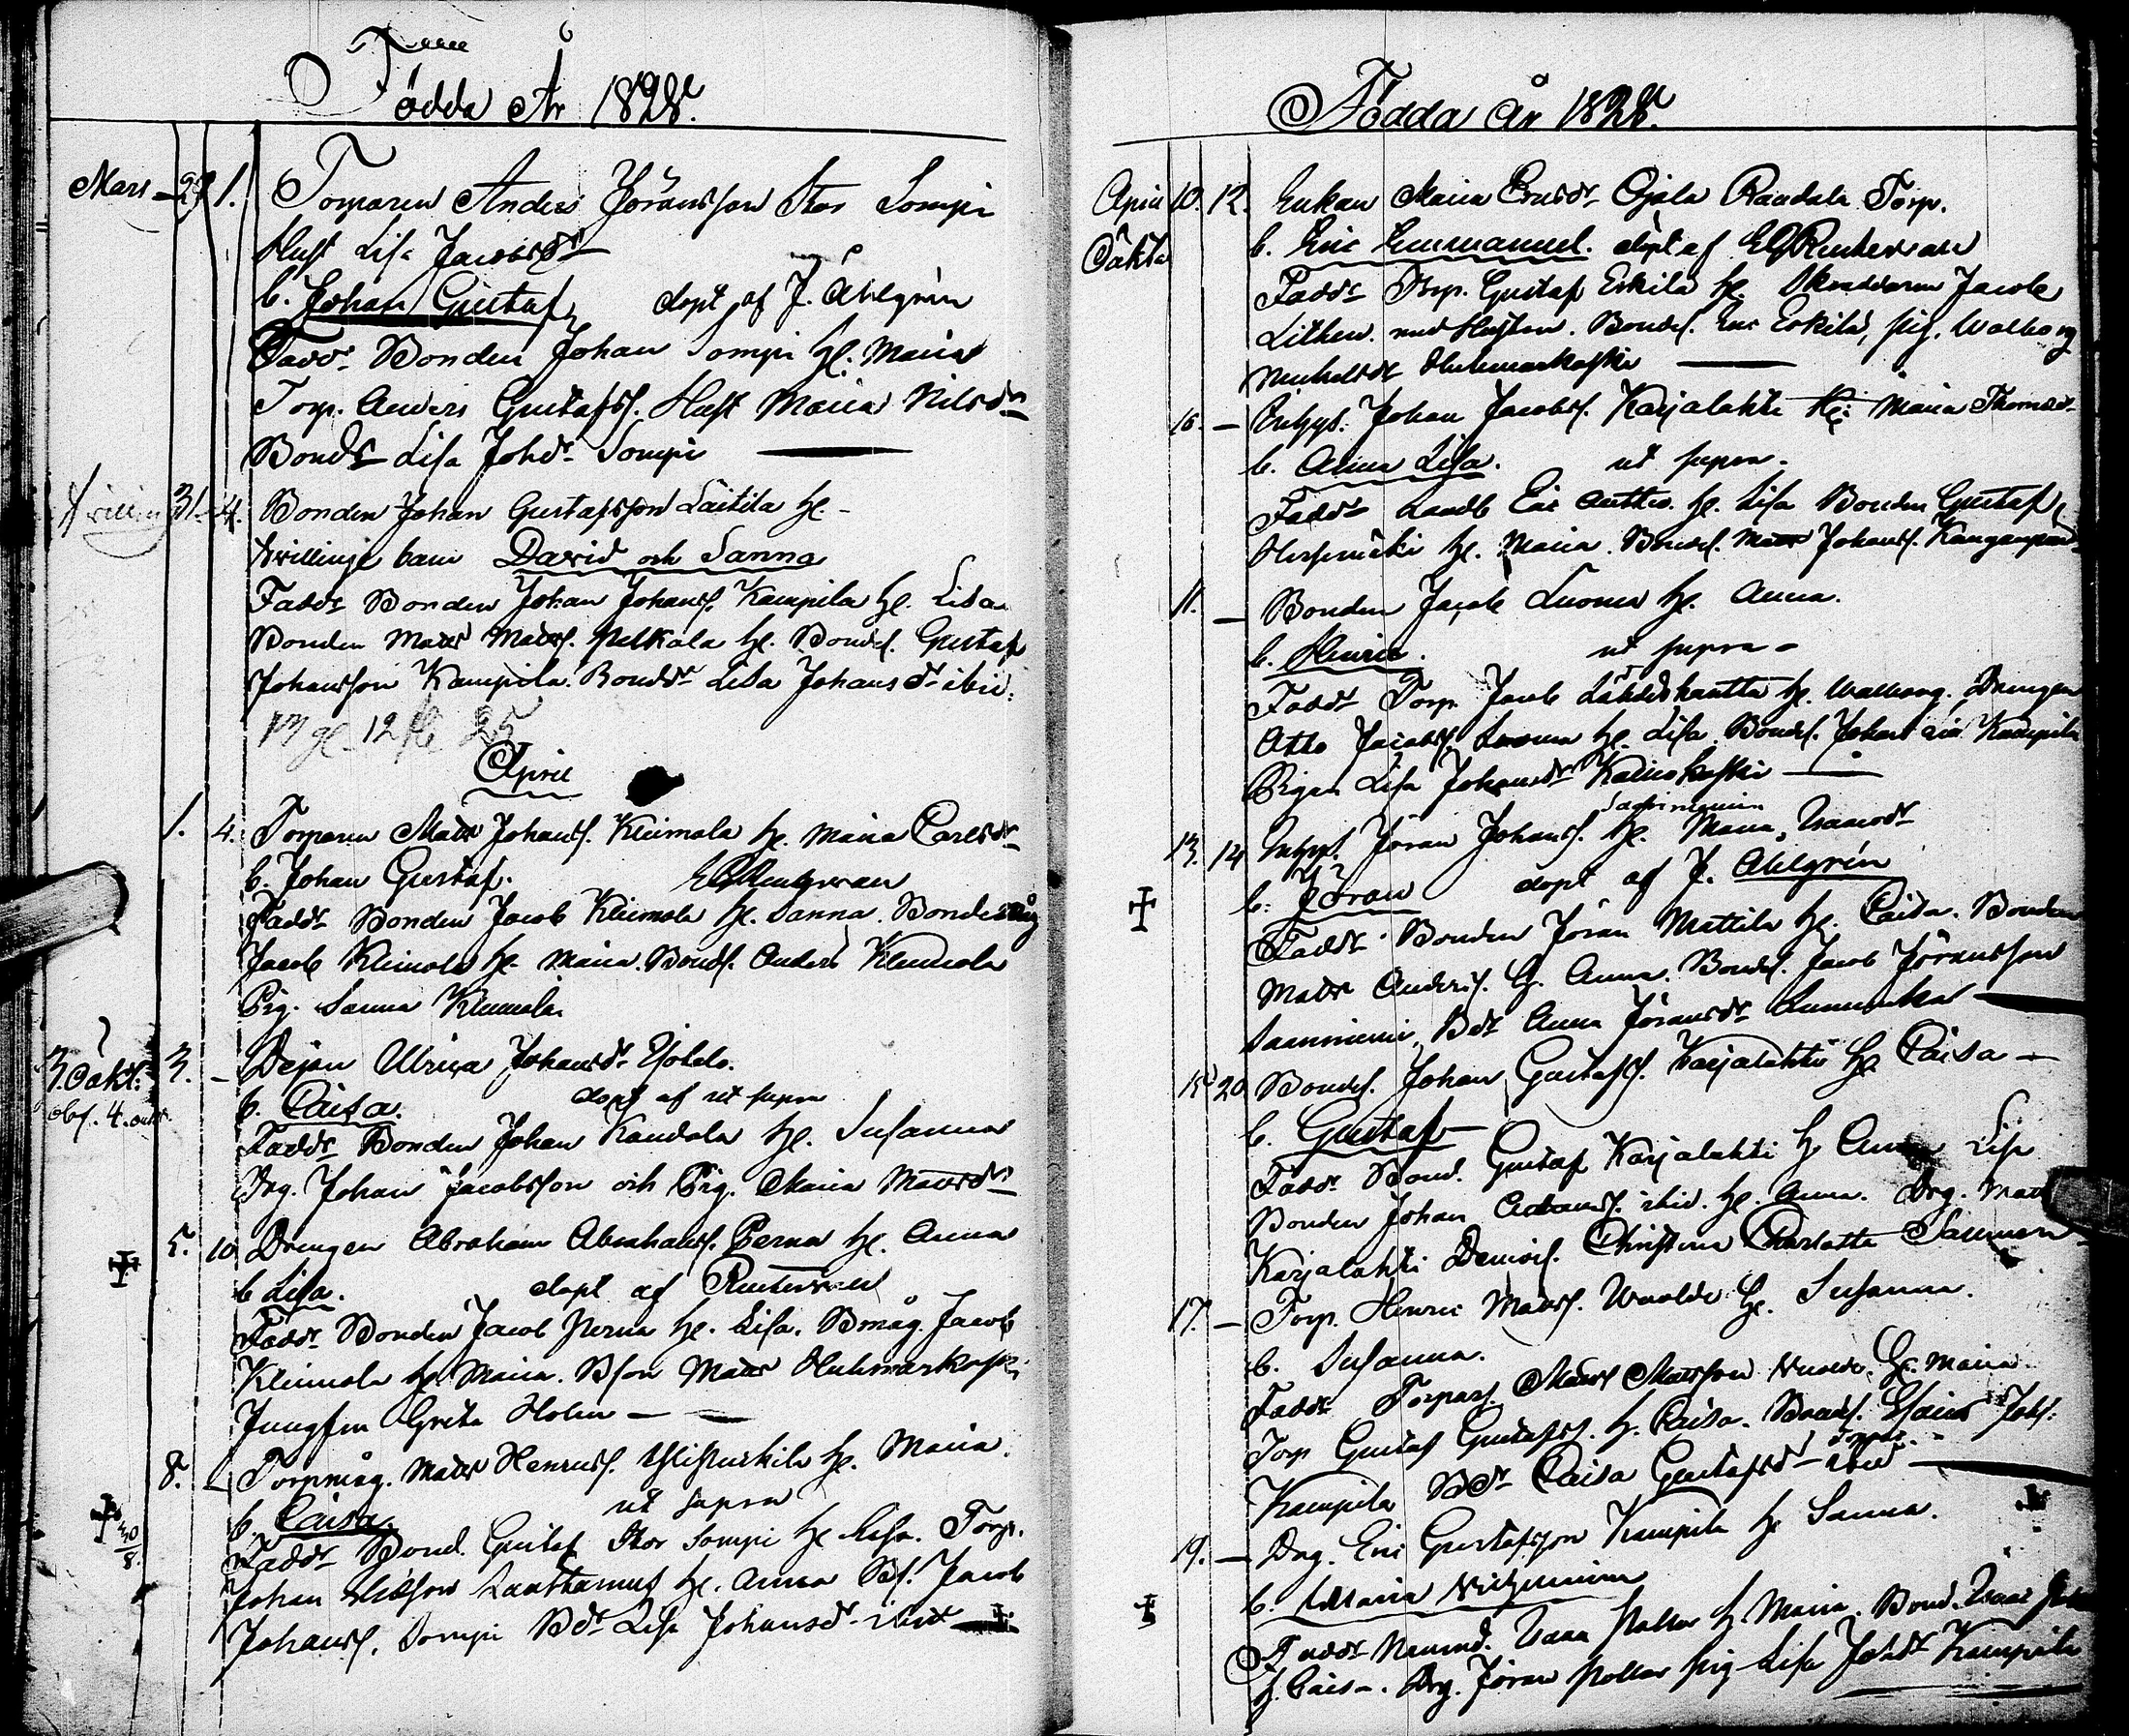 Födda År 1828.
Mars 29 1. Torparen Anders Jöransson Stor Sompi
Hust Lisa Jacobsdr
b. Johan Gustaf döpt af J. Ahlgrén
Faddr Bonden Johan Sompi h. Maria
Torp. Anders Gustafss. Hust Maria Nilsdr
Bondd Lisa Johdr Sompi
31. 4. Bonden Johan Gustafsson Laitila h.
tvillinge barn David och Sanna
Faddr Bonden Johan Johanss. Kampila h. Lisa
Bonden Matts Mattss. Pelkola h. Bonds. Gustaf
Johansson Kampila. Bonddr Lisa Johansdr ibid.
12 25
April
1. 4. Torparen Matts Johanss. Kleimola h. Maria Carlsdr
b. Johan Gustaf.
Faddr Bonden Jacob Kleimola h. Sanna. Bondemåg
Jacob Kleimola h. Maria. Bonds. Anders Kleimola
Pig. Sanna Kleimola
3. Oäkt: 3. – Dejan Ulrica Johansdr
b. Caisa. döpt af ut supra
Faddr Bonden Johan Kandola h. Susanna
Drg. Johan Jacobsson och Pig. Maria Mattsdr
5. 10 Drengen Abraham Abrahamss. Perna h. Anna
b Lisa. döpt af
Faddr Bonden Jacob Perna h. Lisa. Bmåg Jacob
Kleimola h. Maria. Bson Matts Huhmarkoski
Jungfru Greta Holm –
8. Torpmåg. Matts Henrics. h. Maria.
b. Caisa. ut supra
30/8. Faddr Bond. Gustaf Stor Sompi h. Lisa. Torp.
Johan h. Anna Bs. Jacob
Johanss. Sompi Bdr Lisa Johansd. ibid
Födda år 1828.
April 10. 12. Enkan Maria Ersdr Ojala Raudala Torp.
Oäkta b. Eric Emmanuel. döpt af
Faddr Torp. Gustaf Eskila h. Skräddaren Jacob
Lithen med Hustru. Bonds. Eric Eskila, pig. Walborg
Michelsdr Huhmarkoski
16. – Inhys. Johan Jacobss. Karjalahti h. Maria Thomasdr
b. Anna Lisa. ut supra.
Faddr Landb Eric Anttio. h. Lisa Bonden Gustaf
h. Maria. Bonds. Matts Johanss. Kangaspää
11. – Bonden Jacob Luoma h. Anna.
b. Henric. ut supra –
Faddr Torp. Jacob h. Walborg. Drengen
Otto Jacobss. Luoma h. Lisa. Bonds. Johan Kampila
Pigan Lisa Johansdr
13. 14 Inhys. Jöran Johanss. h. Maria Isaacsdr
b. Jöran döpt af J. Ahlgrén
Faddr Bonden Jöran Mattila h. Caisa. Bonden
Matts Anderss. h. Anna. Bonds. Jacob Jöransson
Bdr Anna Jöransdr
15 20 Bonds. Johan Gustafss. Karjalahti h. Caisa –
b. Gustaf –
Faddr Bond. Gustaf Karjalahti h. Anna Lisa
Bonden Johan Adamss. ibid. h. Anna. Drg. Matts
Karjalahti Demois. Christina Charlotta
17. – Torp. Henric Mattss. h. Susanna.
b. Susanna.
Faddr Torpars. Matts Mattsson h. Maria
Torp Gustaf Gustafss. h. Caisa. Bonds. Johs.
Kampila Bdr Caisa Gustafsdr ibid
19. – Drg. Eric Gustafsson Kampila h. Sanna.
b. Maria Wilhelmina
Faddr Nämnd. Isaac h. Maria. Bond. Isaac
h. Caisa. Drg. Jöran pig Lisa Johdr Kampila